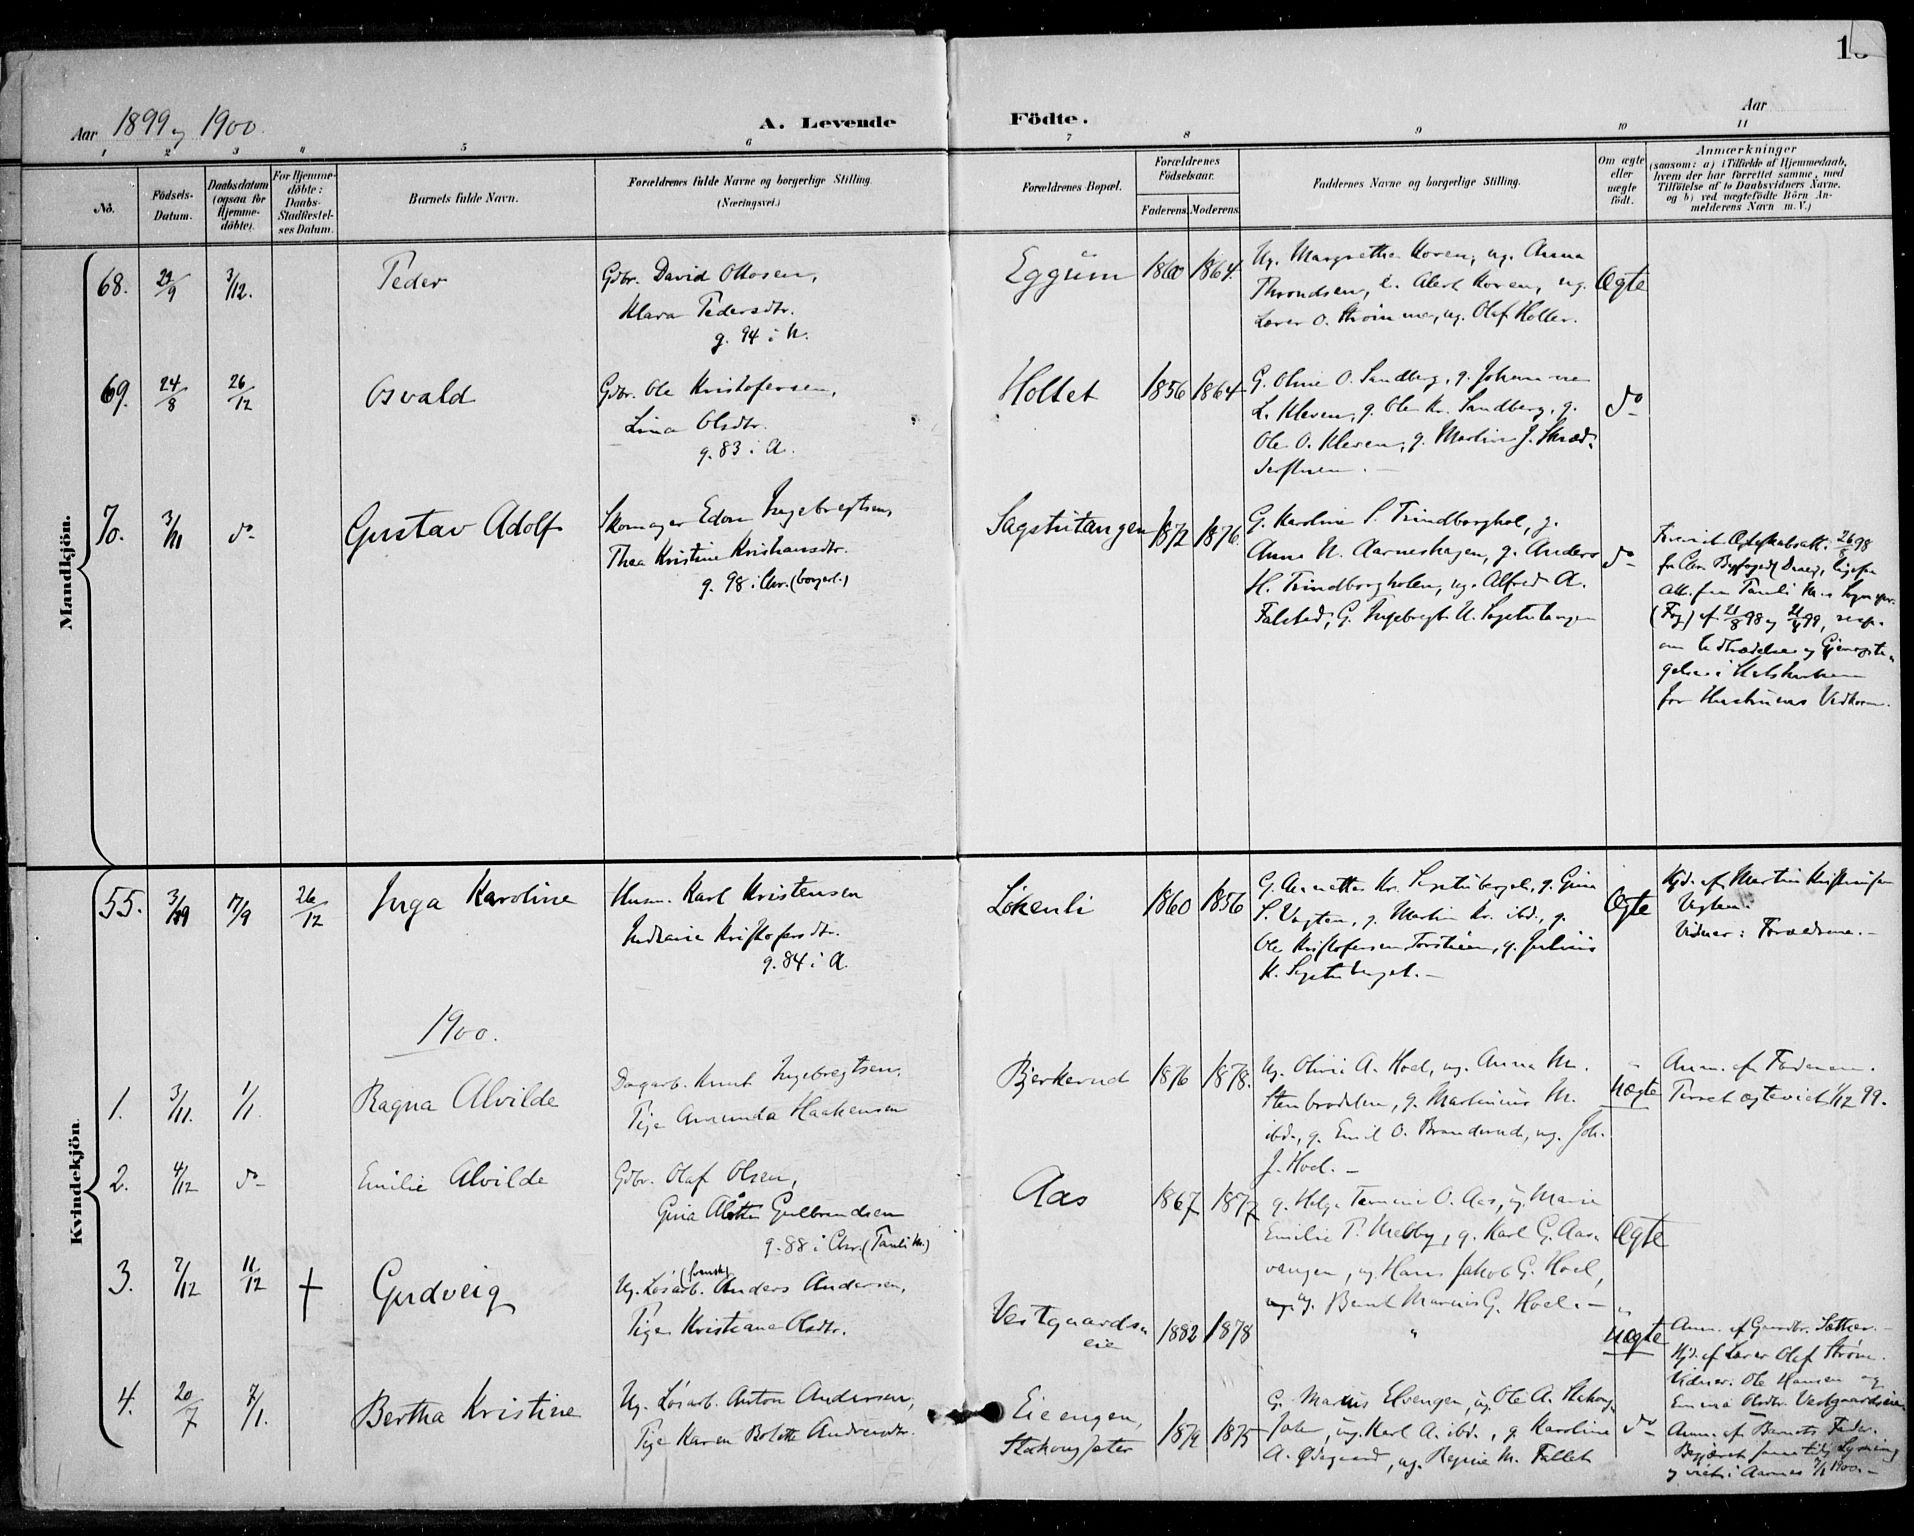 15
Aar 1899 og 1900.
A. Levende Födte.
Aar
1 2 3 4 5 6 7 8 9 10 11
No.
Födsels-Datum.
Daabsdatum (ogsaa for Hjemme-döbte).
For Hjemme-döbte: Daabs-Stadfæstel-ses Datum.
Barnets fulde Navn.
Forældrenes fulde Navne og borgerlige Stilling. (Næringsvei.)
Forældrenes Bopæl.
Forældrenes Födselsaar.
Faderens. Moderens.
Faddernes Navne og borgerlige Stilling.
Om ægte eller uægte födt.
Anmærkninger
(saasom: a) i Tilfælde af Hjemmedaab,
hvem der har forrettet samme, med
Tilföielse af to Daabsvidners Navne.
og b) ved uægtefödte Börn An-
melderens Navn m. V.)
Mandkjön.
68. 29/9 3/12. Peder
Gdbr. David Ottosen,
Klara Pedersdtr.
g. 94 i N.
Eggum 1860 1864.
Ug. Margrethe Koren, ug. Anna
Throndsen, e. Albert Koren, ug.
Lærer O. Strømme, ug. Olaf Holter.
Ægte
69. 24/8 26/12 Osvald
Gdbr. Ole Kristofersen,
Lina Olsdtr.
g. 83 i A.
Holtet 1856 1864
G. Oline O. Sandberg, g. Johanne
L. Kleven, g. Ole Kr. Sandberg, g.
Ole O. Kleven, g. Martin J. Skræd-
derstuen.
do
70. 3/11 do Gustav Adolf
Skomager Edvin Ingebregtsen,
Thea Kristine Kristiansdtr.
g. 98 i Chr. (borgerl.)
Sagstutangen 1872 1876.
G. Karoline P. Trindborghol, g.
Anna N. Aarneshagen, g. Anders
H. Trindborgholen, ug. Alfred A.
Falstad, G. Ingebregt N. Sagstutangen
do
26/8 98
fra Chr. Byfoged
Att. fra Pauli M.s Sogn
(Fog) af 21/8 98 og
om Udtrædelse og Gjenopta-
gelse i Statskirken
for Hustruens Vedkom.
Kvindekjön.
55. 3/ 17/9 26/12 Inga Karoline
Husm. Karl Kristensen
Indiana Kristofersdtr.
g. 84 i A.
Lökenli 1860 1856
G. Annette Kr. Sagstuberget, g. Gina
P. Vagten, g. Martin Kr. ibd., g.
Ole Kristofersen Torstuen, g. Julius
K. Sagstuberget. –
Ægte
Hjd. af Martin Kristiansen
Vagten.
Vidner: Forældrene. –
1900.
1. 3/11. 1/1. Ragna Alvilde
Dagarb. Knut Ingebregtsen,
Pige Amunda Haakensen
Bjerkerud 1876 1878.
Ug. Olivie A. Hoel, ug. Anna M.
Stenbrodden, g. Martinius M.
ibd., g. Emil O. Branderud, ug. Joh.
J. Hoel. –
uægte
Anm. af Faderen.
Forret. ægteviet 1/12 99.
2. 4/12 do Emilie Alvilde
Gdbr. Olaf Olsen,
Gina Alette Gulbrandsen
g. 88 i Chr. (Pauli M.)
Aas 1867 1877
g. Helge O. Aas, ug Marie
Emilie P. Melby, g. Karl G. Aas-
vangen, ug Hans Jakob G. Hoel,
ug. Bernt Marius G. Hoel. –
Ægte
3. 7/12 11/12 † Gudveig
(svensk)
Ug. Løsarb. Anders Andersen,
Pige Kristiane Olsdtr.
Vestgaards-
eie 1882 1878
"
uægte
Anm. af Gaardbr. Sæther. –
Hjd. af Lærer Olaf Strøm.
Vidner: Ole Hansen og
Emma Olsdtr. Vestgaardseie
4. 20/7 7/1. Bertha Kristine
Ug. Løsarb. Anton Andersen,
Pige Karen Bolette Andersdtr.
Eieengen,
1879 1875
G. Marius Elvengen, ug. Ole A.
ug. Karl A. ibd., g Karoline
A. Ødegaard, ug. Regine M. Fallet
do
Anm. af Barnets Fader.
Begjæret samtidig Lysning
og viet i Aarnes 7/1 1900. –